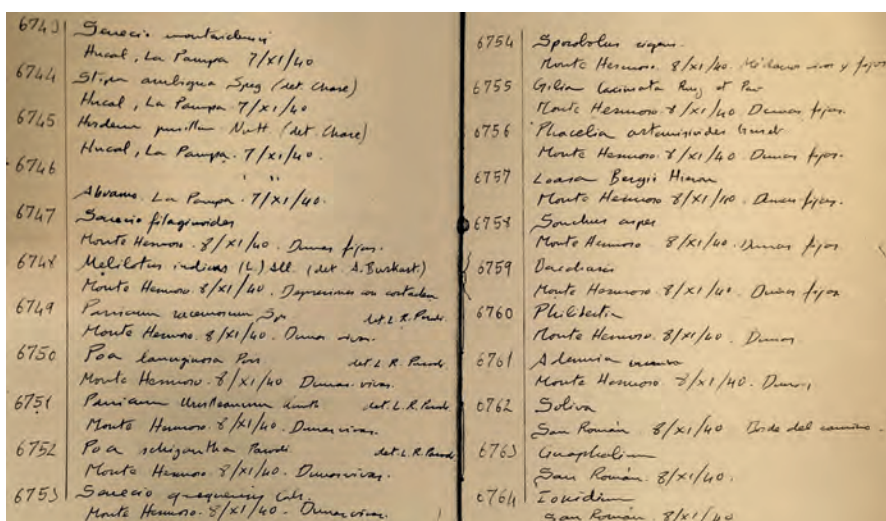 6743 Senecio montevidensis
Hucal, La Pampa 7/XI/40
6744 Stipa ambigua Speg (det. Chase)
Hucal, La Pampa 7/XI/40
6745 Hordeum pusillum Nutt. (det. Chase)
Hucal, La Pampa. 7/XI/40.
6746 " "
Abramo. La Pampa. 7/XI/40.
6747 Senecio filaginoides
Monte Hermoso. 8/XI/40. Dunas fijas.
6748 Melilotus indicus (L) All. (det. A. Burkart.)
Monte Hermoso. 8/XI/40. Depresiones con cortadera
6749 Panicum racemosum Sp det. L. R. Parodi.
Monte Hermoso. 8/XI/40. Dunas vivas.
6750 Poa lanuginosa Poir det L. R. Parodi.
Monte Hermoso. 8/XI/40 Dunas vivas.
6751 Panicum Urvilleanum Kunth det. L. R. Parodi.
Monte Hermoso. 8/XI/40. Dunas vivas.
6752 Poa schizantha Parodi det. L. R. Parodi
Monte Hermoso. 8/XI/40. Dunas vivas.
6753 Senecio quequensis Cabr.
Monte Hermoso. 8/XI/40. Dunas vivas.
6754 Sporobolus rigens.
Monte Hermoso. 8/XI/40. Médanos vivos y fijos
6755 Gilia laciniata Ruiz et Pav
Monte Hermoso 8/XI/40 Dunas fijas.
6756 Phacelia artemisioides Griseb
Monte Hermoso. 8/XI/40. Dunas fijas.
6757 Loasa Bergii Hieron
Monte Hermoso 8/XI/40. Dunas fijas.
6758 Sonchus asper
Monte Hermoso. 8/XI/40. Dunas fijas
6759 Baccharis
Monte Hermoso. 8/XI/40. Dunas fijas
6760 Philibertia
Monte Hermoso. 8/XI/40. Dunas
6761 Adesmia
Monte Hermoso 8/XI/40. Dunas
6762 Soliva
San Román. 8/XI/40 Borde del camino.
6763 Gnaphalium
San Román. 8/XI/40.
6764 Ionidium
San Román. 8/XI/40